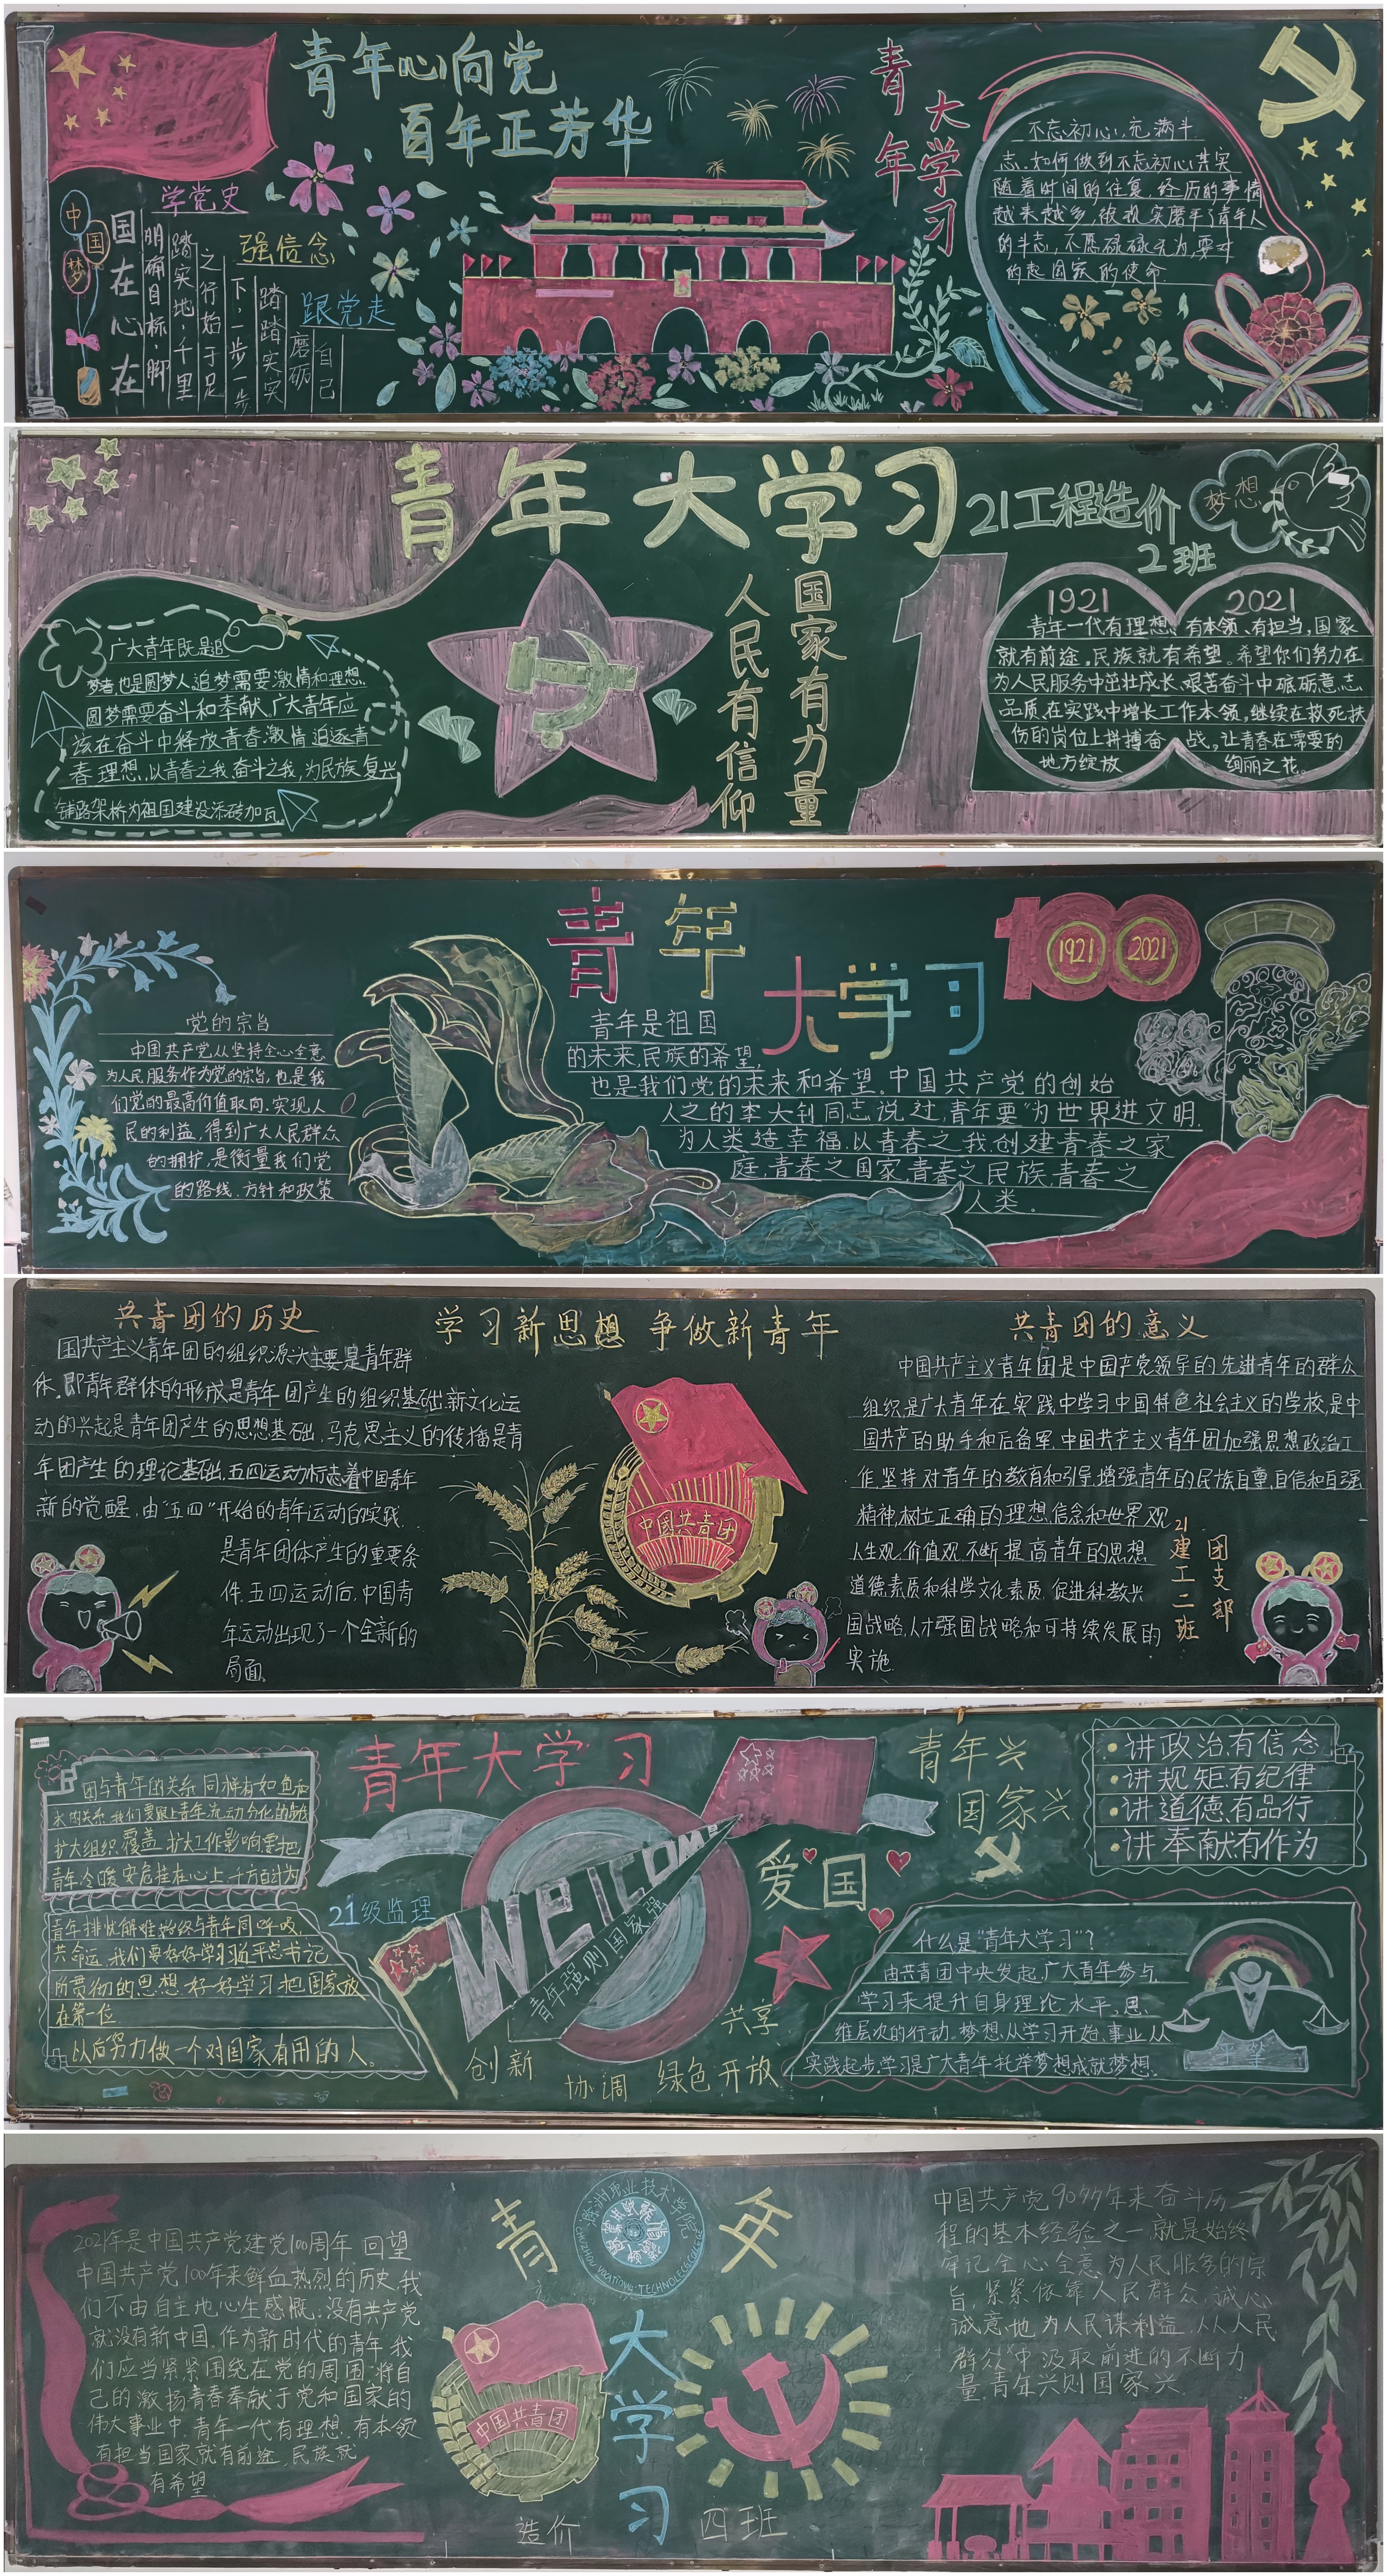 青年心向党
百年正芳华
青年
大学习
中国梦
学党史
强信念
跟党走
国在心在
明确目标,脚
踏实地,千里
之行始于足
下,一步一步
踏踏实实
磨砺
自己
不忘初心,充满斗
志,如何做到不忘初心其实
随着时间的往复,经历的事情
越来越多,被现实磨平了青年人
的斗志,不愿碌碌无为,要对
的起国家的使命
青年大学习
21工程造价
2班
梦想
广大青年既是追
梦者,也是圆梦人,追梦需要激情和理想,
圆梦需要奋斗和奉献,广大青年应
该在奋斗中释放青春激情,追逐青
春理想,以青春之我,奋斗之我,为民族复兴
铺路架桥,为祖国建设添砖加瓦
人民有信仰
国家有力量
1921 2021
青年一代有理想、有本领、有担当,国家
就有前途,民族就有希望。希望你们努力在
为人民服务中茁壮成长,艰苦奋斗中砥砺意志
品质,在实践中增长工作本领,继续在救死扶
伤的岗位上拼搏奋战,让青春在需要的
地方绽放绚丽之花。
青年
大学习
1921 2021
党的宗旨
中国共产党从坚持全心全意
为人民服务作为党的宗旨,也是我
们党的最高价值取向,实现人
民的利益,得到广大人民群众
的拥护,是衡量我们党
的路线、方针和政策
青年是祖国
的未来,民族的希望,
也是我们党的未来和希望。中国共产党的创始
人之的李大钊同志说过,青年要"为世界进文明,
为人类造幸福,以青春之我,创建青春之家
庭,青春之国家,青春之民族,青春之
人类。
共青团的历史
学习新思想 争做新青年
共青团的意义
国共产主义青年团的组织源头主要是青年群
体,即青年群体的形成是青年团产生的组织基础,新文化运
动的兴起是青年团产生的思想基础,马克思主义的传播是青
年团产生的理论基础,五四运动标志着中国青年
新的觉醒,由"五四"开始的青年运动的实践
是青年团体产生的重要条
件,五四运动后,中国青
年运动出现了一个全新的
局面。
中国共青团
中国共产主义青年团是中国产党领导的先进青年的群众
组织,是广大青年在实践中学习中国特色社会主义的学校,是中
国共产的助手和后备军,中国共产主义青年团加强思想政治工
作,坚持对青年的教育和引导,增强青年的民族自尊,自信和自强
精神,树立正确的理想,信念和世界观
人生观,价值观,不断提高青年的思想
道德素质和科学文化素质,促进科教兴
国战略,人才强国战略和可持续发展的
实施.
21建工二班
团支部
青年大学习
青年兴
国家兴
爱国
21级监理
WELCOME
青年强则国家强
创新
协调
绿色
开放
共享
团与青年的关系,同样有如鱼和
水的关系,我们要跟上青年流动分化的
扩大组织覆盖,扩大工作影响,要把
青年冷暖安危挂在心上,千方百计为
青年排忧解难,始终与青年同呼吸,
共命运,我们要好好学习习近平总书记
所贯彻的思想,好好学习,把国家放
在第一位.
以后努力做一个对国家有用的人。
讲政治,有信念
讲规矩,有纪律
讲道德,有品行
讲奉献,有作为
什么是"青年大学习"?
由共青团中央发起,广大青年参与,
学习来提升自身理论水平、思
维层次的行动,梦想,从学习开始,事业从
实践起步,学习是广大青年托举梦想成就梦想。
青年
大学习
滁洲职业技术学院
CHUZHOU VOCATIONAL TECHNOLEGE COLLEGE
中国共青团
造价 四班
2021年是中国共产党建党100周年,回望
中国共产党100年来鲜血热烈的历史,我
们不由自主地心生感慨:没有共产党
就没有新中国,作为新时代的青年,我
们应当紧紧围绕在党的周围,将自
己的激扬青春奉献于党和国家的
伟大事业中,青年一代有理想,有本领
有担当,国家就有前途,民族就
有希望.
中国共产党90多年来奋斗历
程的基本经验之一,就是始终
牢记全心全意为人民服务的宗
旨,紧紧依靠人民群众,诚心
诚意地为人民谋利益,从人民
群众中汲取前进的不断力
量,青年兴则国家兴